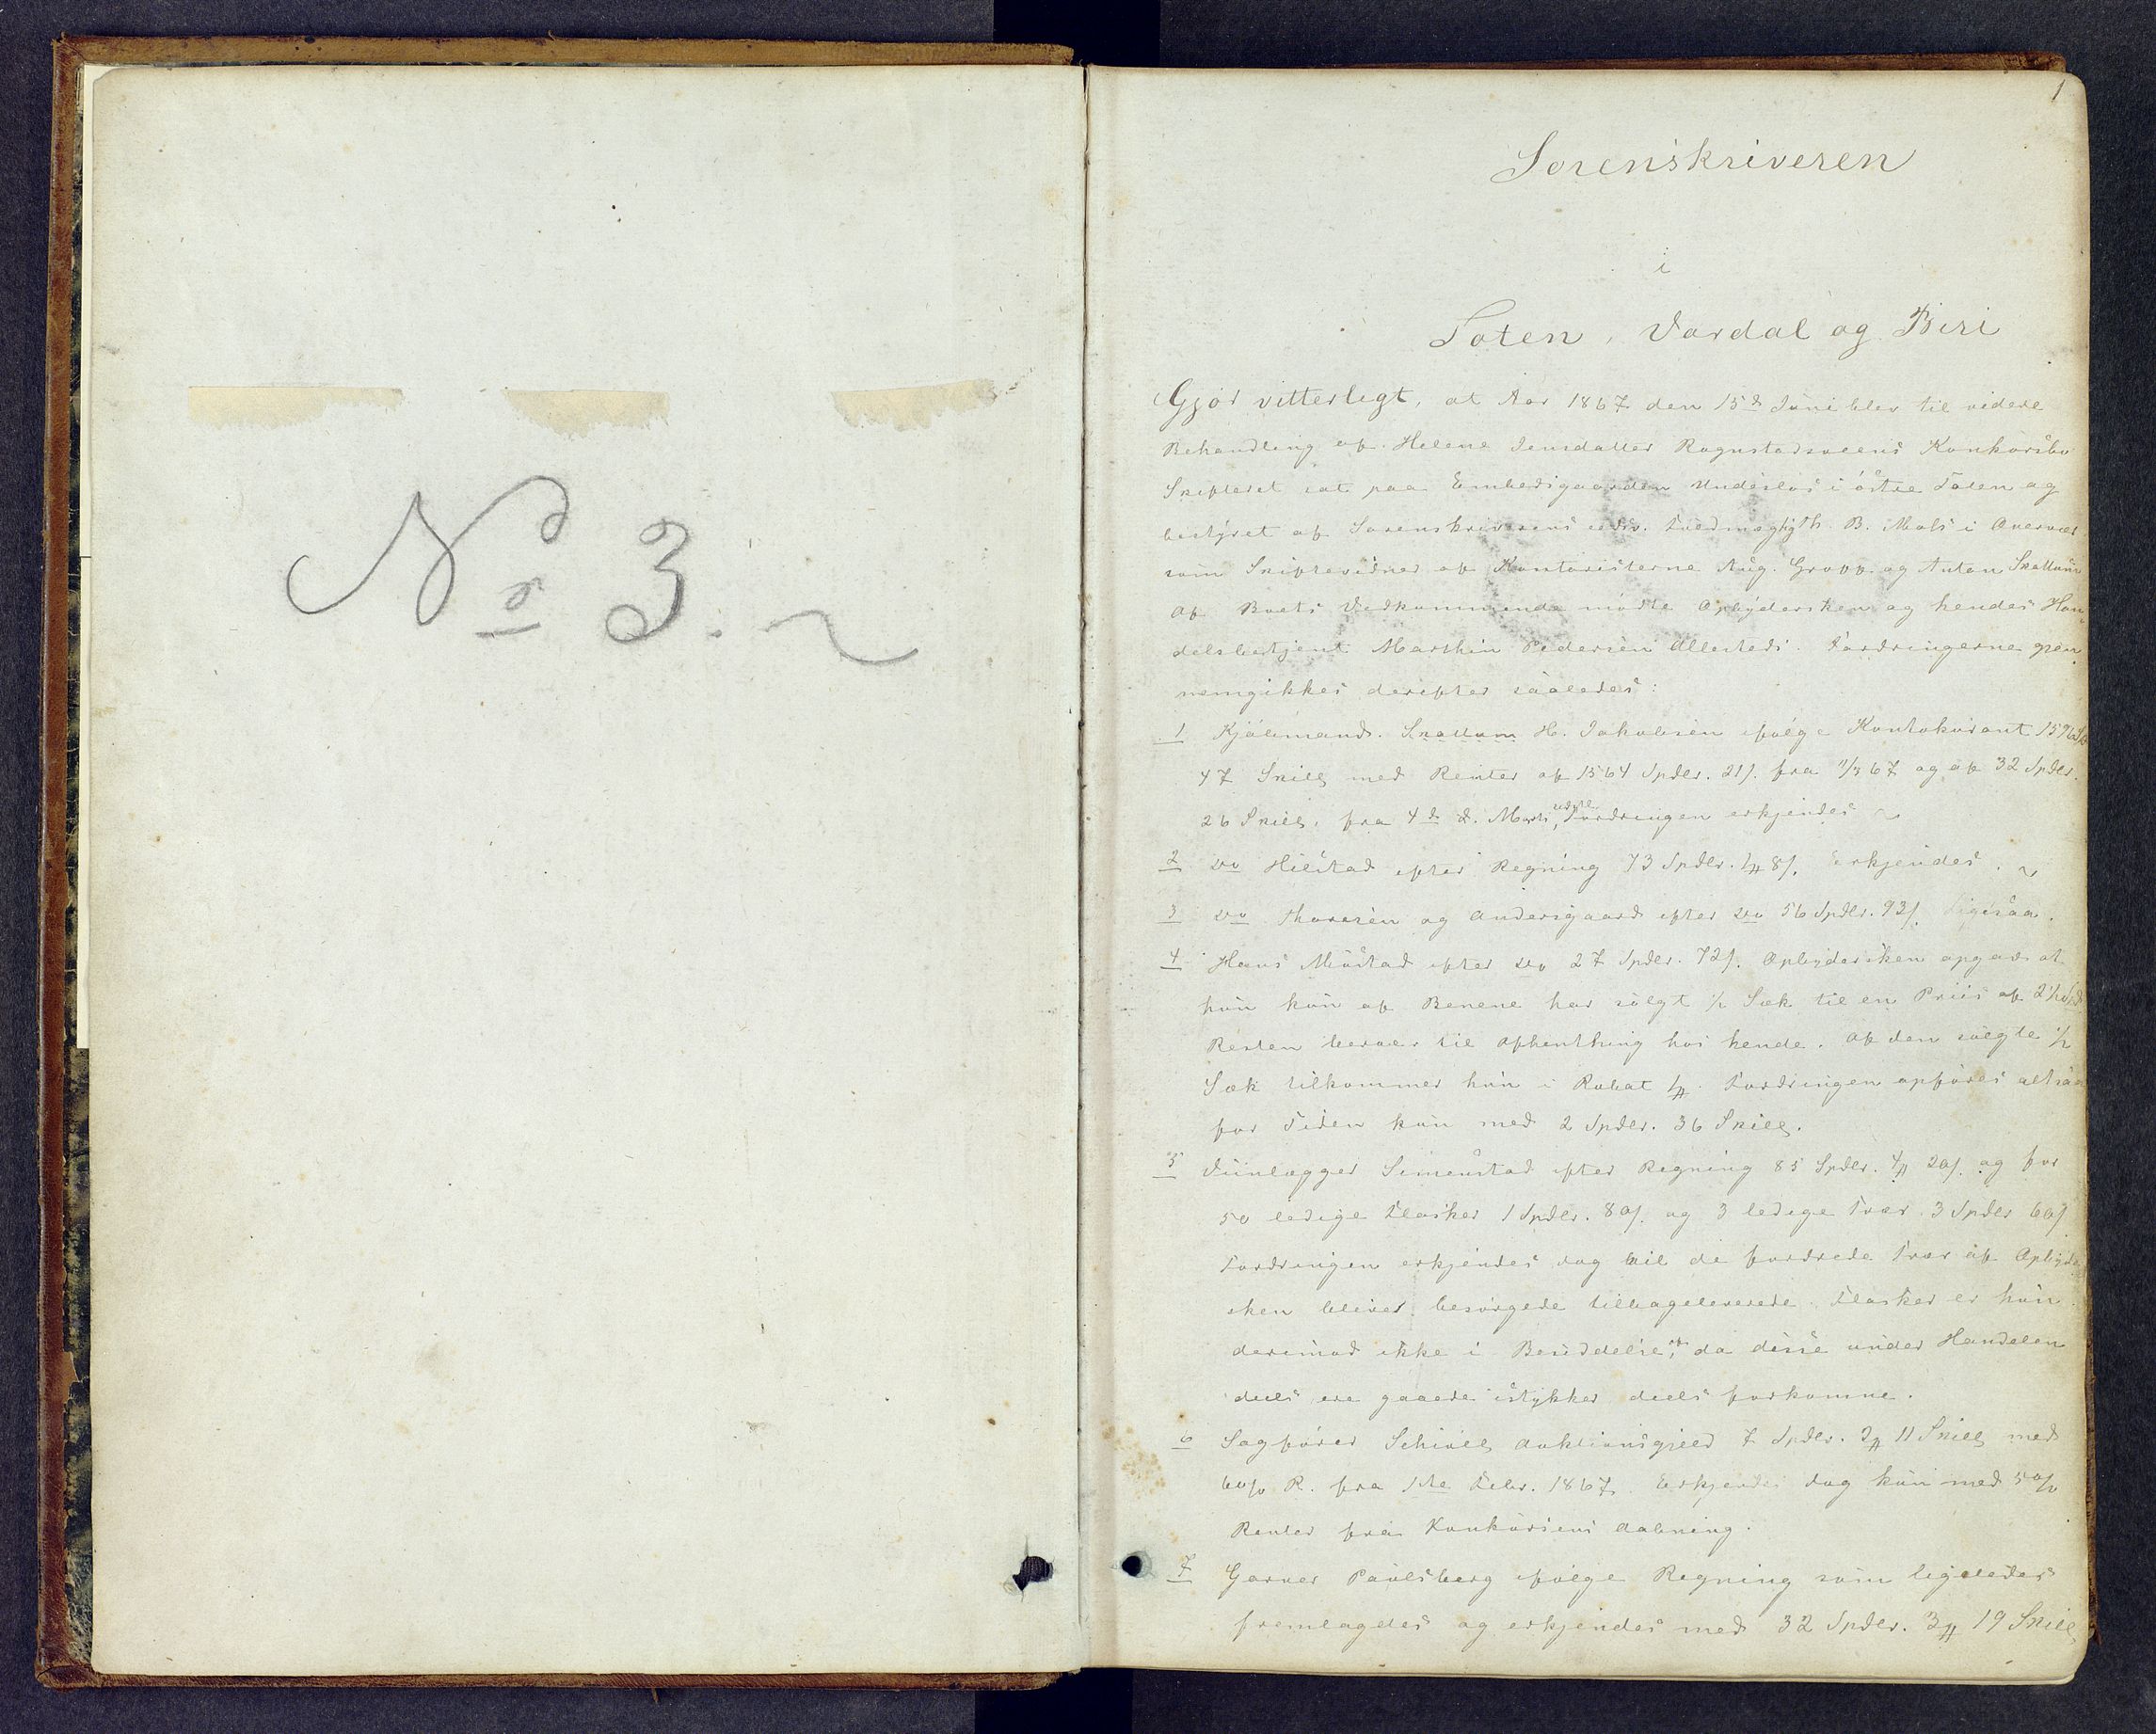 No 3.
1
Sorenskriveren
i
Toten, Vardal og Biri
Gjør vitterligt, at Aar 1867 den 15de Juni blev til videre
Behandling af Helene Jensdatter Rognstadsveens Konkursbo
Skifteret sat paa Embedsgaarden Underlos i østre Toten og
bestyret af Sorenskriverens edsv. Fuldmægtig Th. B. Mats i Overvær
som Skiftevidner af Kontoristerne Aug. Gropp og Anton Skattum
Af Boets Vedkommende mødte Opbydersken og hendes Han
delsbetjent Marthin Pedersen Alfstads. Fordringerne gjen
nemgikkes derefter saaledes:
1 Kjøbmand Skattum H. Jakobsen ifølge Kontokurant 1596 Spd
47 Skill med Renter af 1564 Spdlr. 21 s. fra 1/3 67 og af 32 Spdlr.
26 Skill. fra 4de d. Marts, Fordringen erkjendes
2 do Hilstad efter Regning 73 Spdlr. 1 # 8 s. Erkjendes.
3 do Thoresen og Andersgaard efter do 56 Spdlr. 93 s. Ligesaa.
4 Hans Mustad efter do 27 Spdlr. 72 s. Opbydersken opgav at
hun kun af Benene har solgt 1/2 Sæk til en Priis af 2 1/2 Spd
Resten beroer til Afhentning hos hende. Af den solgte 1/2
Sæk tilkommer hun i Rabat 1 #. Fordringen opføres altsaa
for Tiden kun med 2 Spdlr. 36 Skill.
5 Viinlægger Simenstad efter Regning 85 Spdlr. 4 # 20 s. og for
50 ledige Flasker 1 Spdlr. 80 s. og 3 ledige Træer 3 Spdlr 60 s
Fordringen erkjendes dog vil de fordrede Træer af Opbyder
sken bliver besørgede tilbageleverede. Flasker er hun
derimod ikke i Besiddelse af, da disse under Handelen
deels ere gaaede istykker deels forkomne.
6 Sagfører Schiøll Auktionsgjeld 7 Spdlr. 2 # 11 Skill med
6 o/o R. fra 1ste Febr. 1867. Erkjendes dog kun med 5 o/o
Renter fra Konkursens Aabning.
7 Garver Paulsberg ifølge Regning som ligeledes
fremlagdes og erkjendes med 32 Spdlr. 3 # 19 Skill